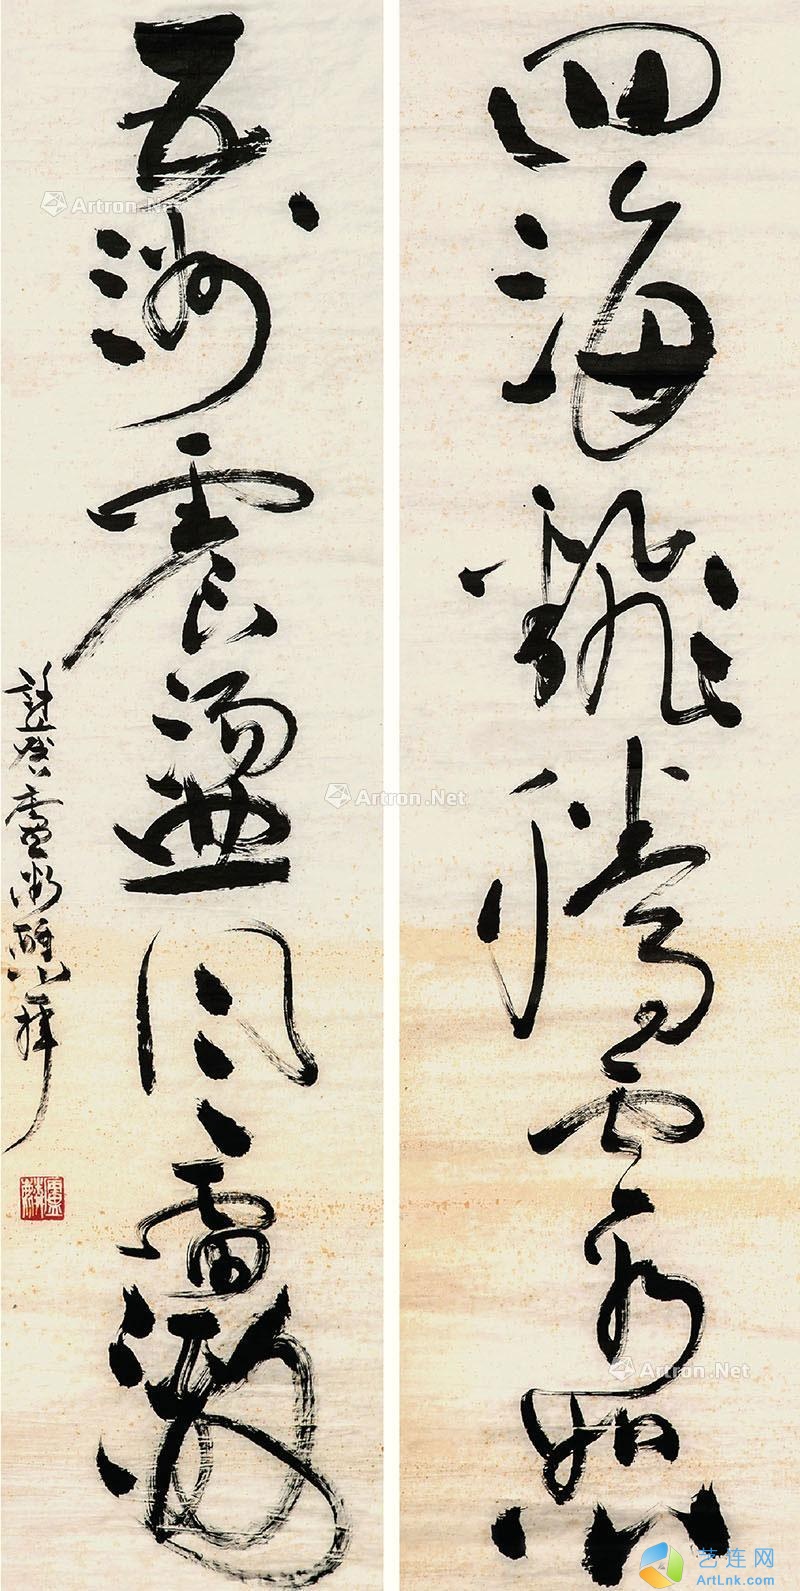 四海飜騰雲水怒
五洲震盪風雷激
Artron.Net
Artron.Net
Artron.Net
艺连网
ArtLnk.com